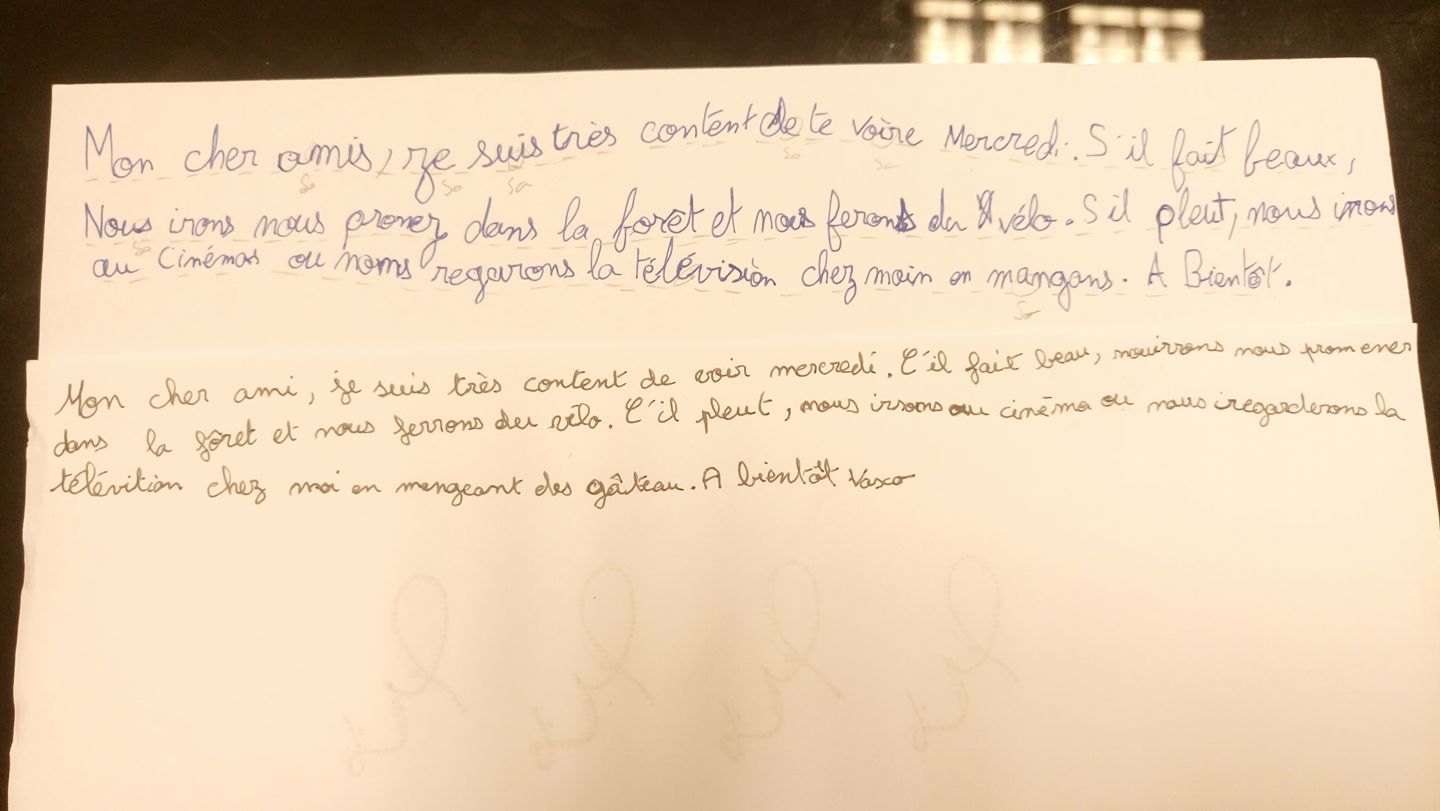 Mon cher amis, je suis très content de te voire Mercredi. S'il fait beaux,
Nous irons nous promez dans la forêt et nous ferons du vélo. S'il pleut, nous irons
au Cinémas ou nous regarons la télévision chez moin en mangans. A Bientôt.
Mon cher ami, je suis très content de voir mercredi. C'il fait beau, nouirrons nous promener
dans la fôret et nous ferrons du vélo. C'il pleut, nous irsons au cinéma ou nous regarderons la
télévition chez moi en mengeant des gâteau. A bientôt Vasco